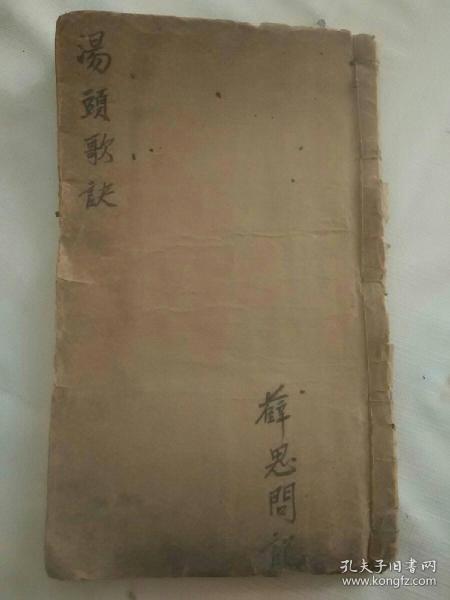 湯頭歌訣
薛思問記
孔夫子旧书网
www.kongfz.com